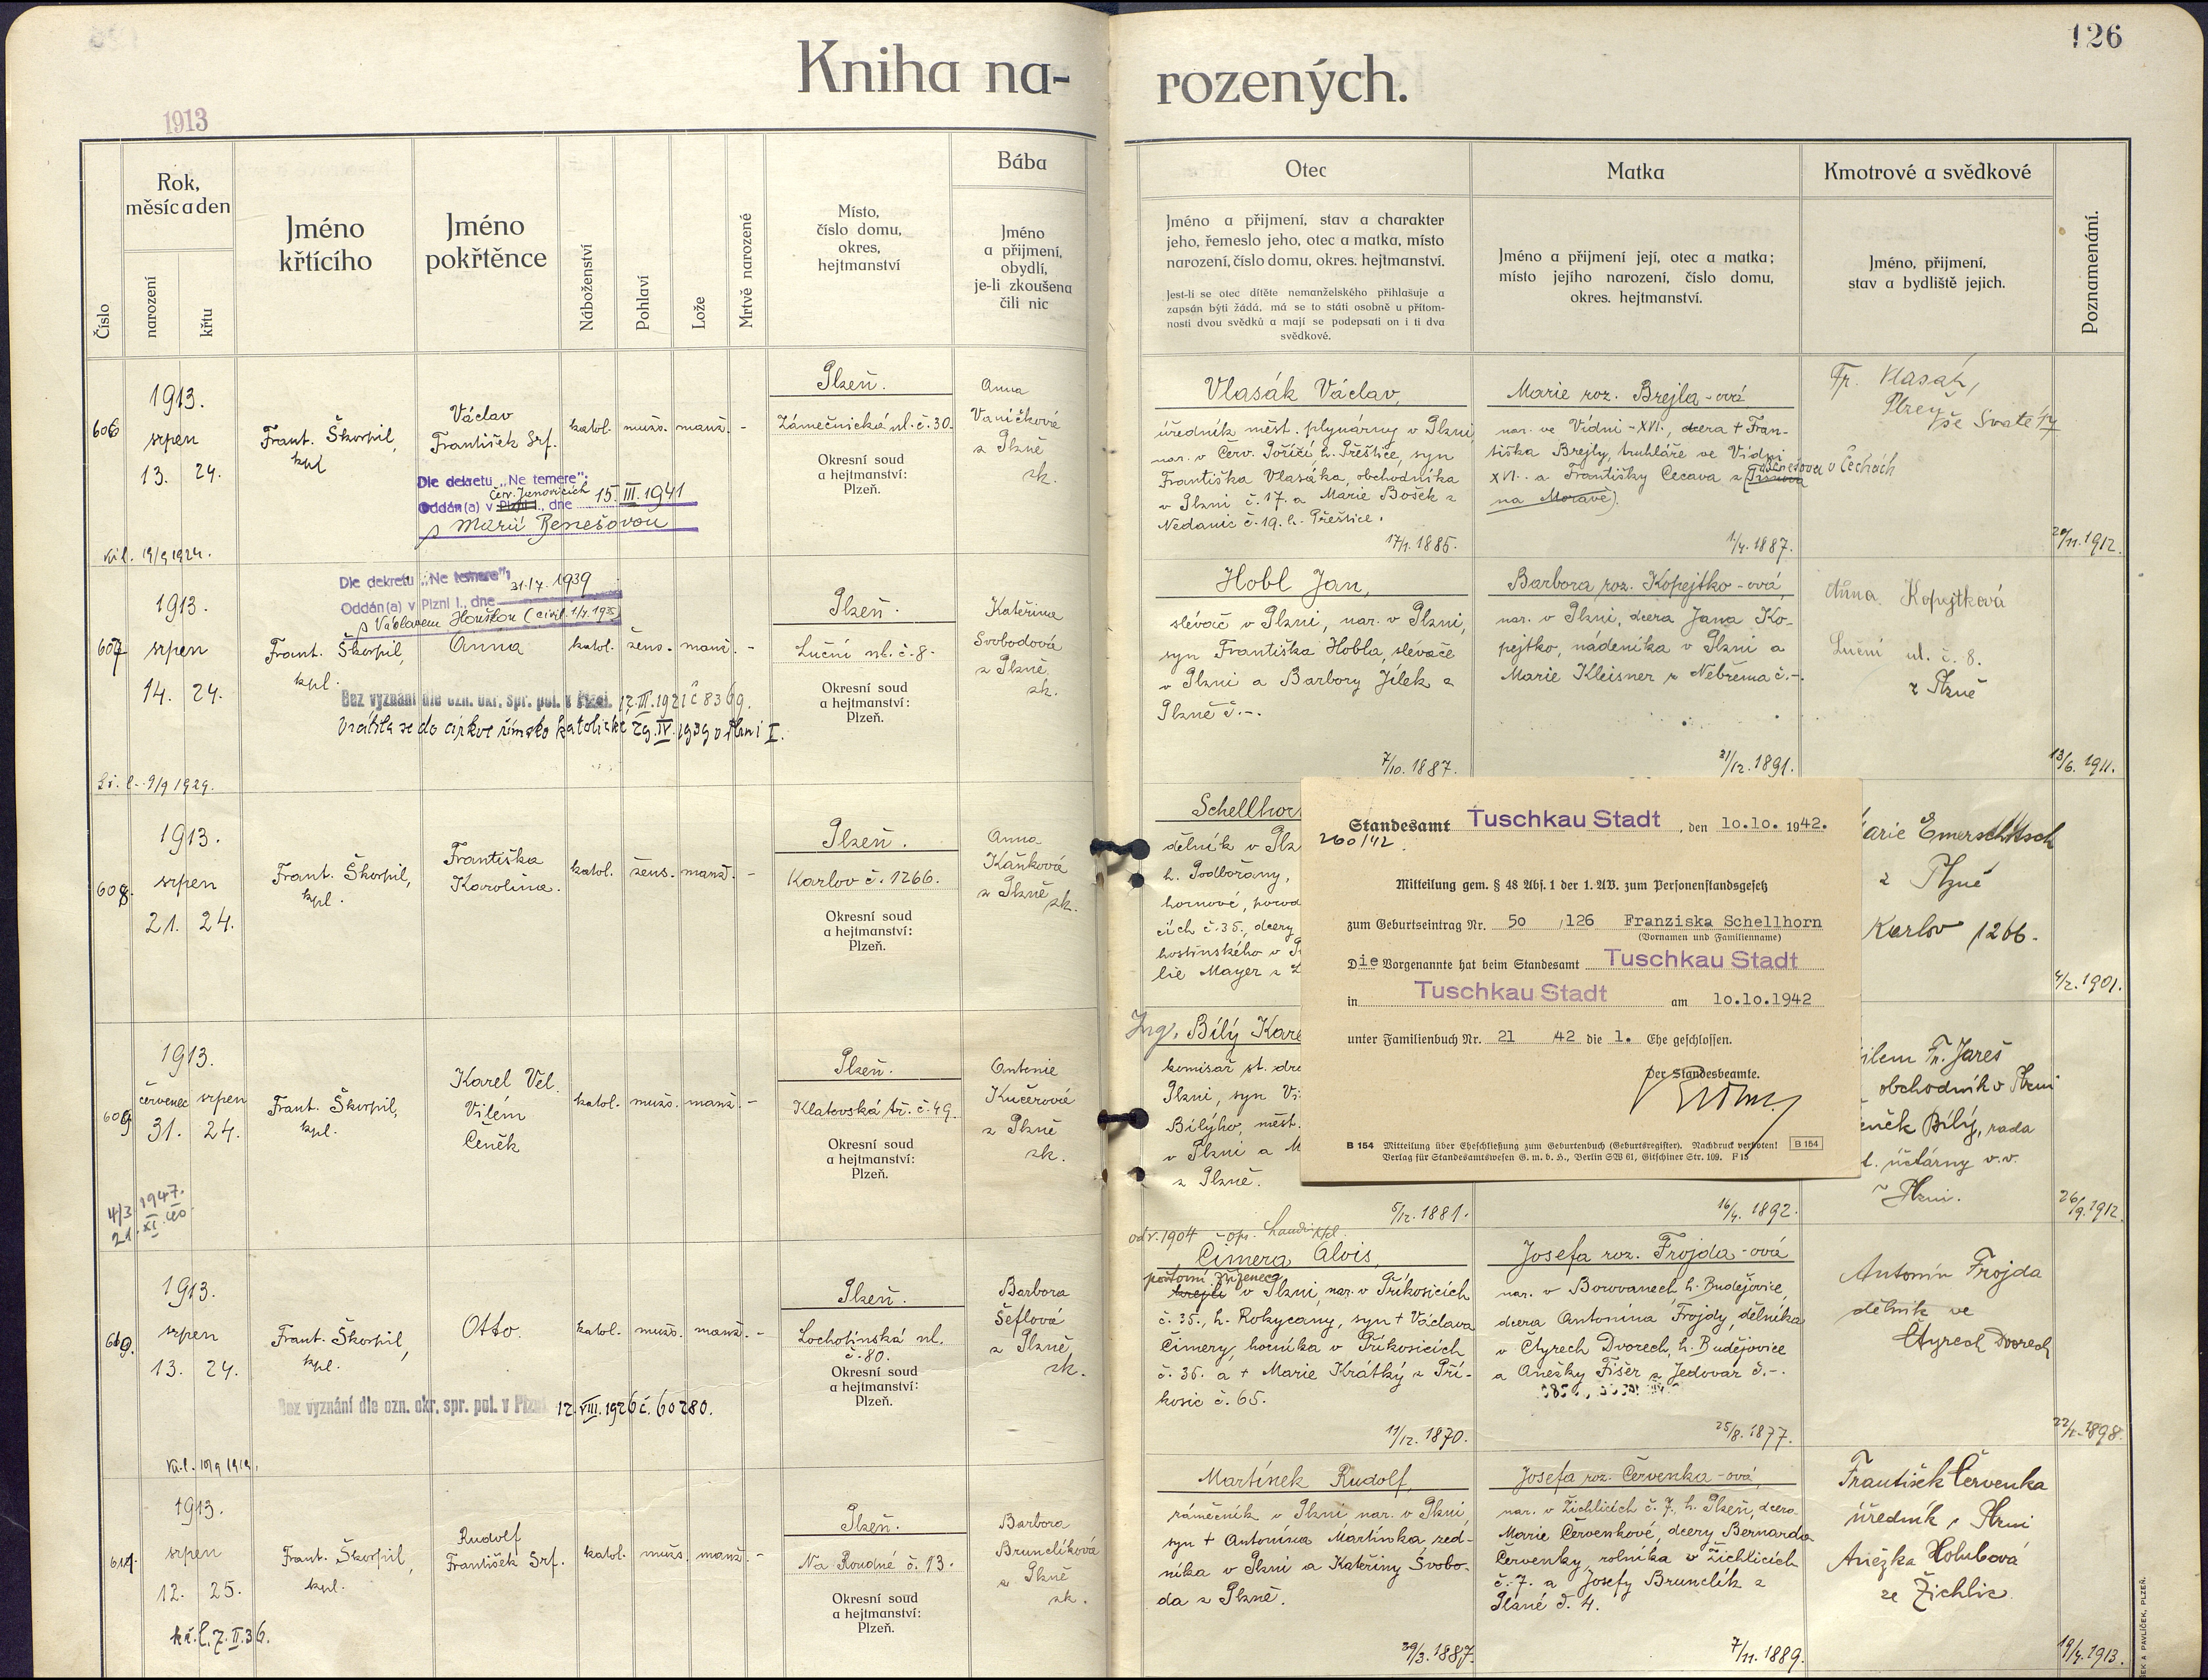 126
Kniha na-
rozených.
1913
Číslo
Rok,
měsíc a den
narození
křtu
Jméno
křtícího
Jméno
pokřtěnce
Náboženství
Pohlaví
Lože
Mrtvě narozené
Místo,
číslo domu,
okres,
hejtmanství
Bába
Jméno
a přijmení,
obydlí,
je-li zkoušena
čili nic
Otec
Jméno a přijmení, stav a charakter
jeho, řemeslo jeho, otec a matka, místo
narození, číslo domu, okres. hejtmanství.
Jest-li se otec dítěte nemanželského přihlašuje a
zapsán býti žádá, má se to státi osobně u přítom-
nosti dvou svědků a mají se podepsati on i ti dva
svědkové.
Matka
Jméno a přijmení její, otec a matka;
místo jejího narození, číslo domu,
okres. hejtmanství.
Kmotrové a svědkové
Jméno, přijmení,
stav a bydliště jejich.
Poznamenání.
606
1913.
srpen
13. 24.
Frant. Škorpil,
kpl.
Václav
František Srf.
Dle dekretu „Ne temere":
Červ. Janovicích
Oddán(a) v Plzni I., dne 15. III. 1941
s Marií Benešovou
katol. mužs. manž. -
Plzeň.
Zámečnická ul. č. 30.
Okresní soud
a hejtmanství:
Plzeň.
Anna
Vaníčková
z Plzně
zk.
Vlasák Václav,
úředník měst. plynárny v Plzni,
nar. v Červ. Poříčí h. Přeštice, syn
Františka Vlasáka, obchodníka
v Plzni č. 17. a Marie Bošek z
Nedanic č. 19. h. Přeštice.
17/1. 1885.
Marie roz. Brejla-ová,
nar. ve Vídni - XVI., dcera + Fran-
tiška Brejly, truhláře ve Vídni
XVI. a Františky Cecava z
Benešova v Čechách
na Moravě).
1/4. 1887.
Fr. Vlasák,
Plzeň
29/11. 1912.
607
1913.
srpen
14. 24.
Frant. Škorpil,
kpl.
Dle dekretu „Ne temere":
Oddán(a) v Plzni I., dne 31. /7. 1939
s Václavem Houškou
Anna
katol. žens. manž. -
Bez vyznání dle ozn. okr. spr. pol. v Plzni 17. III. 1921 č 8369.
Vrátila se do církve římsko katolické 29. IV. 1939 v Plzni I.
Plzeň.
Luční ul. č. 8.
Okresní soud
a hejtmanství:
Plzeň.
Kateřina
Svobodová
z Plzně,
zk.
Hobl Jan,
slévač v Plzni, nar. v Plzni,
syn Františka Hobla, slévače
v Plzni a Barbory Jílek z
Plzně č. -.
7/10. 1887.
Barbora roz. Kopejtko-ová,
nar. v Plzni, dcera Jana Ko-
pejtko, nádeníka v Plzni a
Marie Kleisner z Nebřema č. -.
31/12. 1891.
Anna Kopejtková
Luční ul. č. 8.
z Plzně
13/6. 1911.
608.
1913.
srpen
21. 24.
Frant. Škorpil,
kpl.
Františka
Karolina.
katol. žens. manž. -
Plzeň.
Karlov č. 1266.
Okresní soud
a hejtmanství:
Plzeň.
Anna
Kaňková
z Plzně
zk.
Schellhor
dělník v Plz
h. Podbořany,
hornové, porod
cích č. 35., dcery
hostinského v
lie Mayer z
arie Emerschitsch
z Plzně
Karlov 1266.
4/2. 1901.
Standesamt Tuschkau Stadt, den 10.10. 1942.
260/42.
Mitteilung gem. § 48 Abs. 1 der 1. AV. zum Personenstandsgesetz
zum Geburtseintrag Nr. 50 /126 Franziska Schellhorn
(Vornamen und Familienname)
Die Vorgenannte hat beim Standesamt Tuschkau Stadt
in Tuschkau Stadt am 10.10.1942
unter Familienbuch Nr. 21 42 die 1. Ehe geschlossen.
Der Standesbeamte.
B 154 Mitteilung über Eheschließung zum Geburtenbuch (Geburtsregister). Nachdruck verboten! B 154
Verlag für Standesamtswesen G. m. b. H., Berlin SW 61, Gitschiner Str. 109. F 15
609
1913.
červenec srpen
31. 24.
Frant. Škorpil,
kpl.
Karel Vel.
Vilém
Čeněk
katol. mužs. manž. -
Plzeň.
Klatovská tř. č. 49.
Okresní soud
a hejtmanství:
Plzeň.
Antonie
Kučerová
z Plzně
zk.
Ing. Bílý Kare
komisař st. dra
Plzni, syn
Bílýho, měst.
v Plzni a M
z Plzně.
5/12. 1881.
16/4. 1892.
ilem Fr. Jareš
obchodník v Plzni
eněk Bílý, rada
účtárny v.v.
v Plzni.
26/9. 1912.
610.
1913.
srpen
13. 24.
Frant. Škorpil,
kpl.
Otto.
katol. mužs. manž. -
Bez vyznání dle ozn. okr. spr. pol. v Plzni 12. VIII. 1926 č. 60280.
Plzeň.
Lochotínská ul.
č. 80.
Okresní soud
a hejtmanství:
Plzeň.
Barbora
Šeflová
z Plzně,
zk.
Čimera Alois,
poštovní zřízenec
krejčí v Plzni, nar. v Příkosicích
č. 35., h. Rokycany, syn + Václava
Čimery, horníka v Příkosicích
č. 35. a + Marie Krátký z Pří-
kosic č. 65.
11/12. 1870.
Josefa roz. Frojda-ová
nar. v Borovanech, h. Budějovice,
dcera Antonína Frojdy, dělníka
v Čtyrech Dvorech, h. Budějovice
a Anežky Fišer z Jedovar č. -.
25/8. 1877.
Antonín Frojda
dělník ve
Čtyrech Dvorech
22/1. 1898.
611.
1913.
srpen
12. 25.
Frant. Škorpil,
kpl.
Rudolf
František Srf.
katol. mužs. manž. -
Plzeň.
Na Roudné č. 13.
Okresní soud
a hejtmanství:
Plzeň.
Barbora
Brunclíková
z Plzně
zk.
Martínek Rudolf,
zámečník v Plzni, nar. v Plzni,
syn + Antonína Martínka, zed-
níka v Plzni a Kateřiny Svobo-
da z Plzně.
29/3. 1887.
Josefa roz. Červenka-ová,
nar. v Žichlicích č. 7., h. Plzeň, dcera
Marie Červenkové, dcery Bernarda
Červenky, rolníka v Žichlicích
č. 7. a Josefy Brunclík z
Plané č. 4.
7/11. 1889.
František Červenka
úředník, Plzni
Anežka Holubová
ze Žichlic
19/4. 1913.